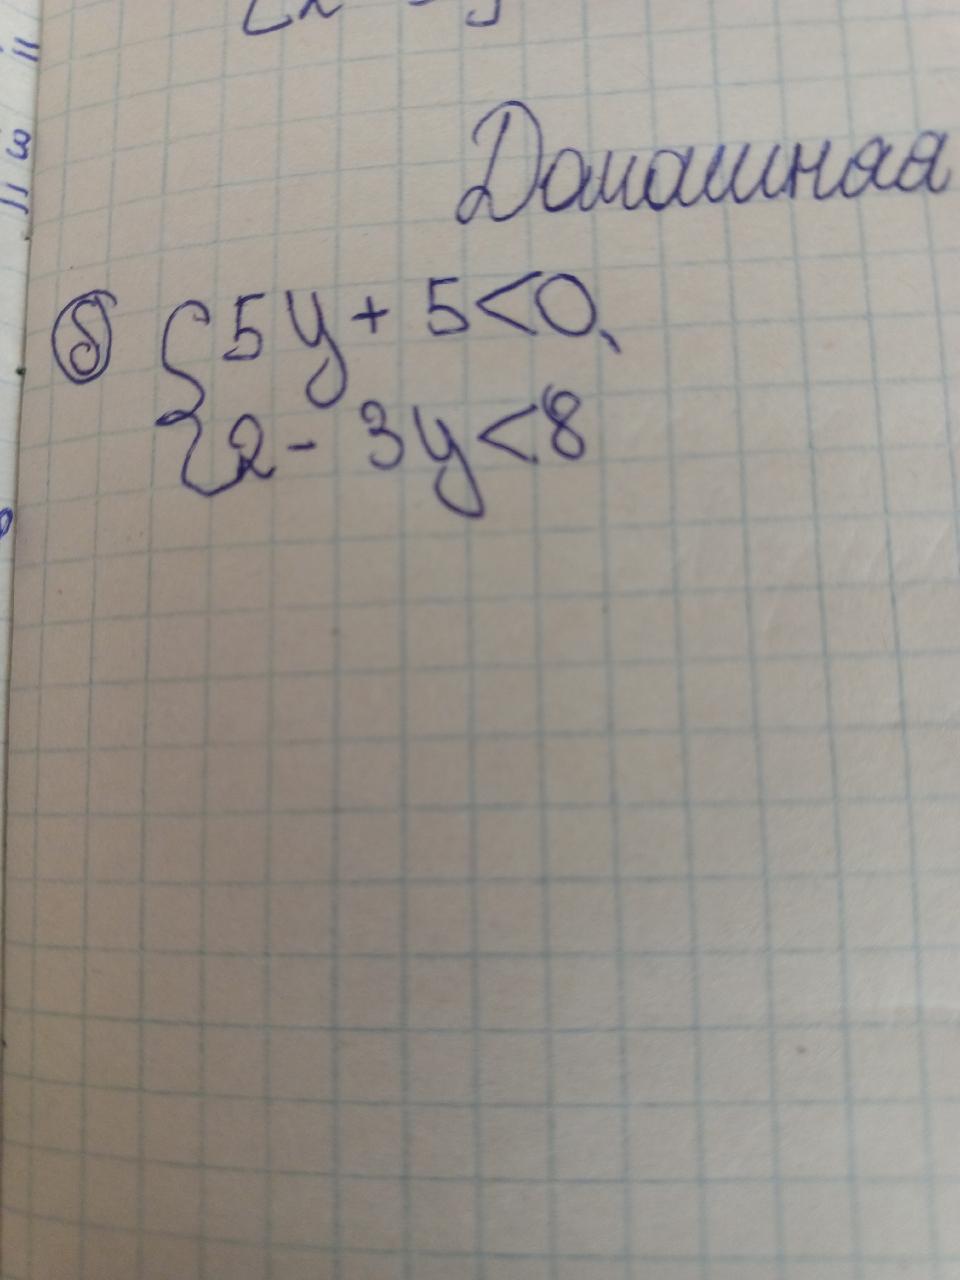 Домашная
б) { 5y + 5 < 0,
2 - 3y < 8